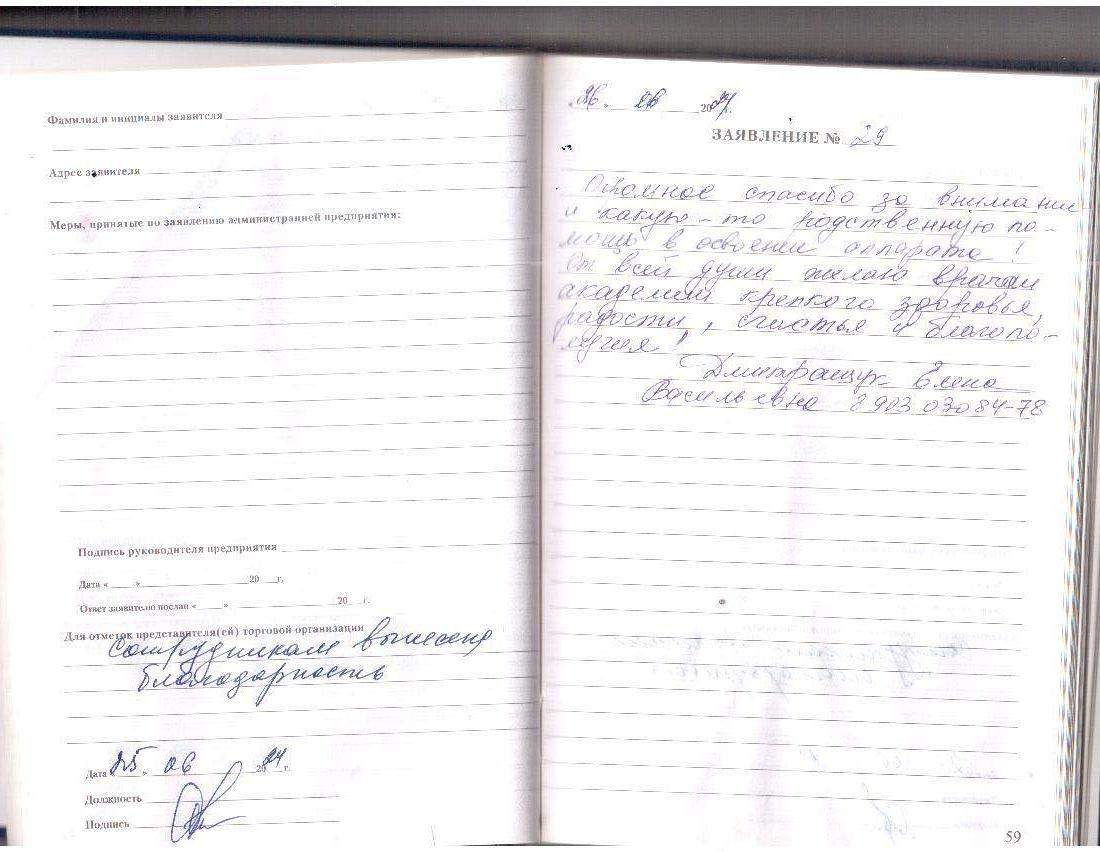 Фамилия и инициалы заявителя
Адрес заявителя
Меры, принятые по заявлению администрацией предприятия:
Подпись руководителя предприятия
Дата « » 20 г.
Ответ заявителю послан « » 20 г.
Для отметок представителя(ей) торговой организации
Сотрудникам вынесена
благодарность
Дата «25» 06 2024 г.
Должность
Подпись
«26» 06 2024 г.
ЗАЯВЛЕНИЕ № 29
Огромное спасибо за внимание
и какую-то родственную по-
мощь в освоении аппарата!
От всей души желаю врачам
академии крепкого здоровья,
радости, счастья и благопо-
лучия!
Дмитращук Елена
Васильевна 8 903 030 84-78
59